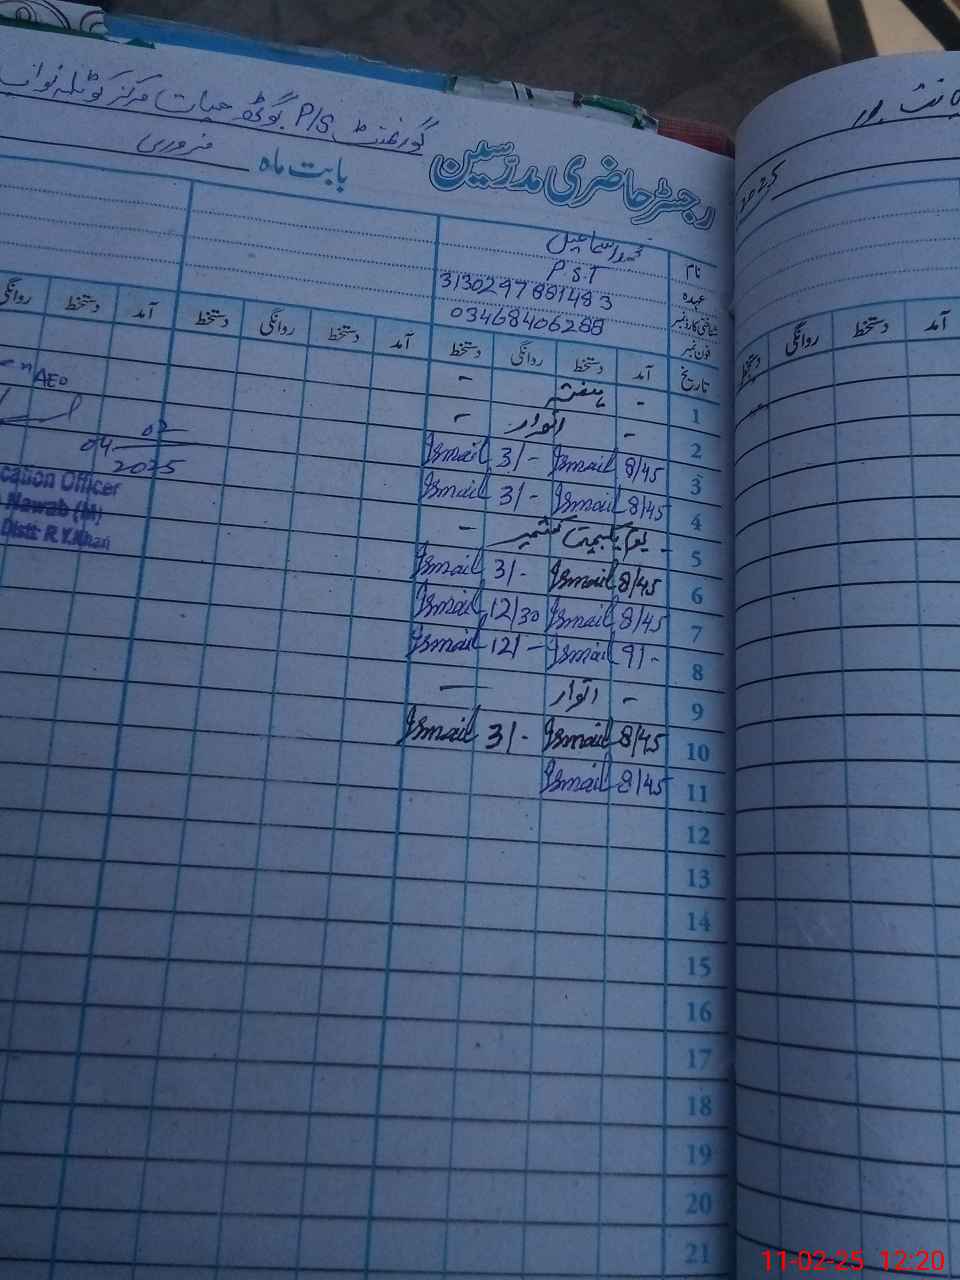 گورنمنٹ P/S بوگڈہ حیات مرکز کوٹلہ نواب
رجسٹر حاضری مدرسین بابت ماہ فروری
نام محمد اسماعیل
عہدہ PST
شناختی کارڈ نمبر 3130297881483
فون نمبر 03468406288
تاریخ آمد دستخط روانگی دستخط آمد دستخط روانگی دستخط آمد دستخط روانگی
1 - ہفتہ -
2 - اتوار -
3 8/45 Ismail 3/- Ismail
4 8/45 Ismail 3/- Ismail
5 - یوم یکجہتی کشمیر -
6 8/45 Ismail 3/- Ismail
7 8/45 Ismail 12/30 Ismail
8 9/- Ismail 12/- Ismail
9 - اتوار -
10 8/45 Ismail 3/- Ismail
11 8/45 Ismail
12
13
14
15
16
17
18
19
20
21
AEO
04 02
2025
cation Officer
Nawab (M)
Distt: R.Y.Khan
دستخط روانگی دستخط آمد
11-02-25 12:20